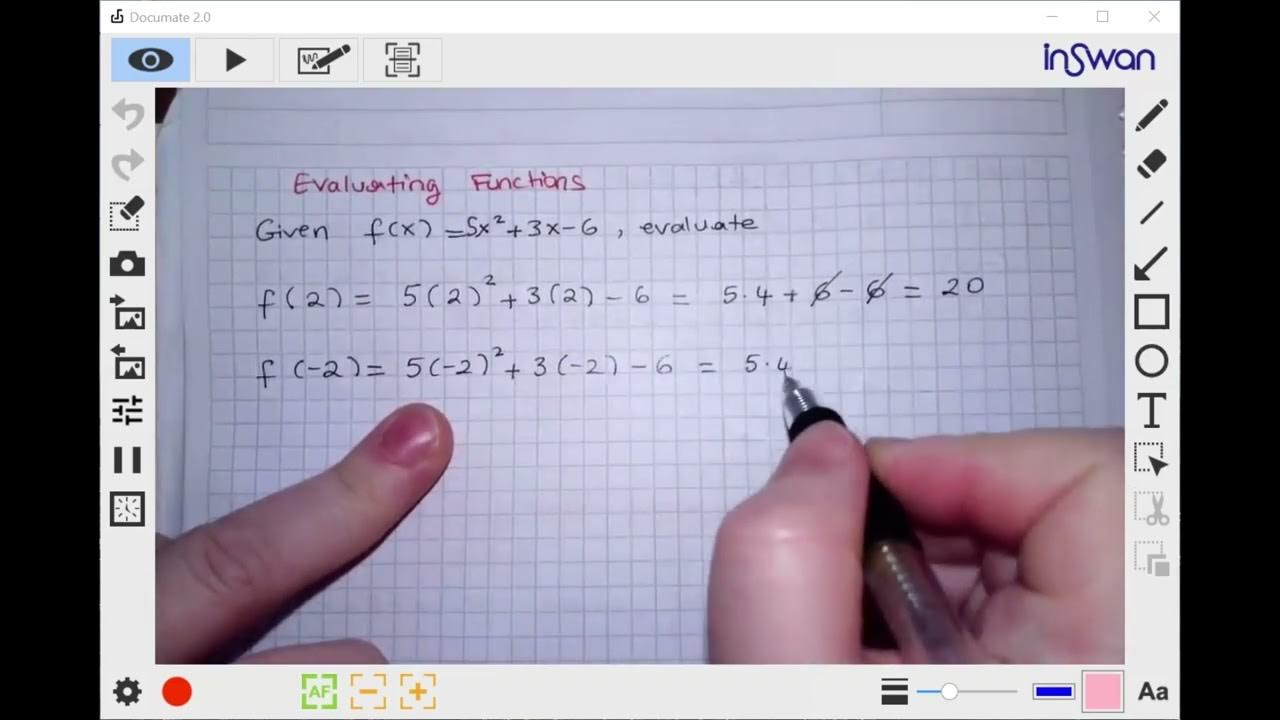 Documate 2.0
inSwan
Evaluating Functions
Given f(x) = 5x² + 3x - 6 , evaluate
f(2) = 5(2)² + 3(2) - 6 = 5.4 + 6 - 6 = 20
f(-2) = 5(-2)² + 3(-2) - 6 = 5.4
AF
T
Aa